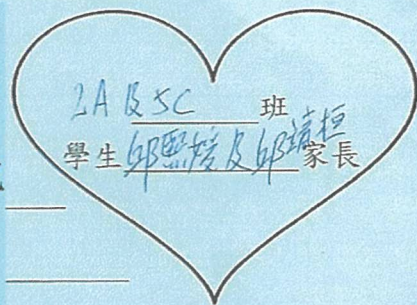 2A及5C班
學生邱熙媛及邱靖桓家長